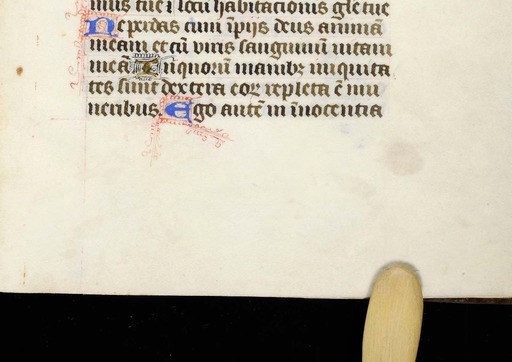 mus tue ⁊ locū habitacionis gl̄e tue
Ne perdas cum īpijs deus animā
meam et cū viris sanguinū vitam
meā In quorū manibꝫ iniquita
tes sunt dextera eoꝝ repleta ē mu
neribus Ego autē in inocentia